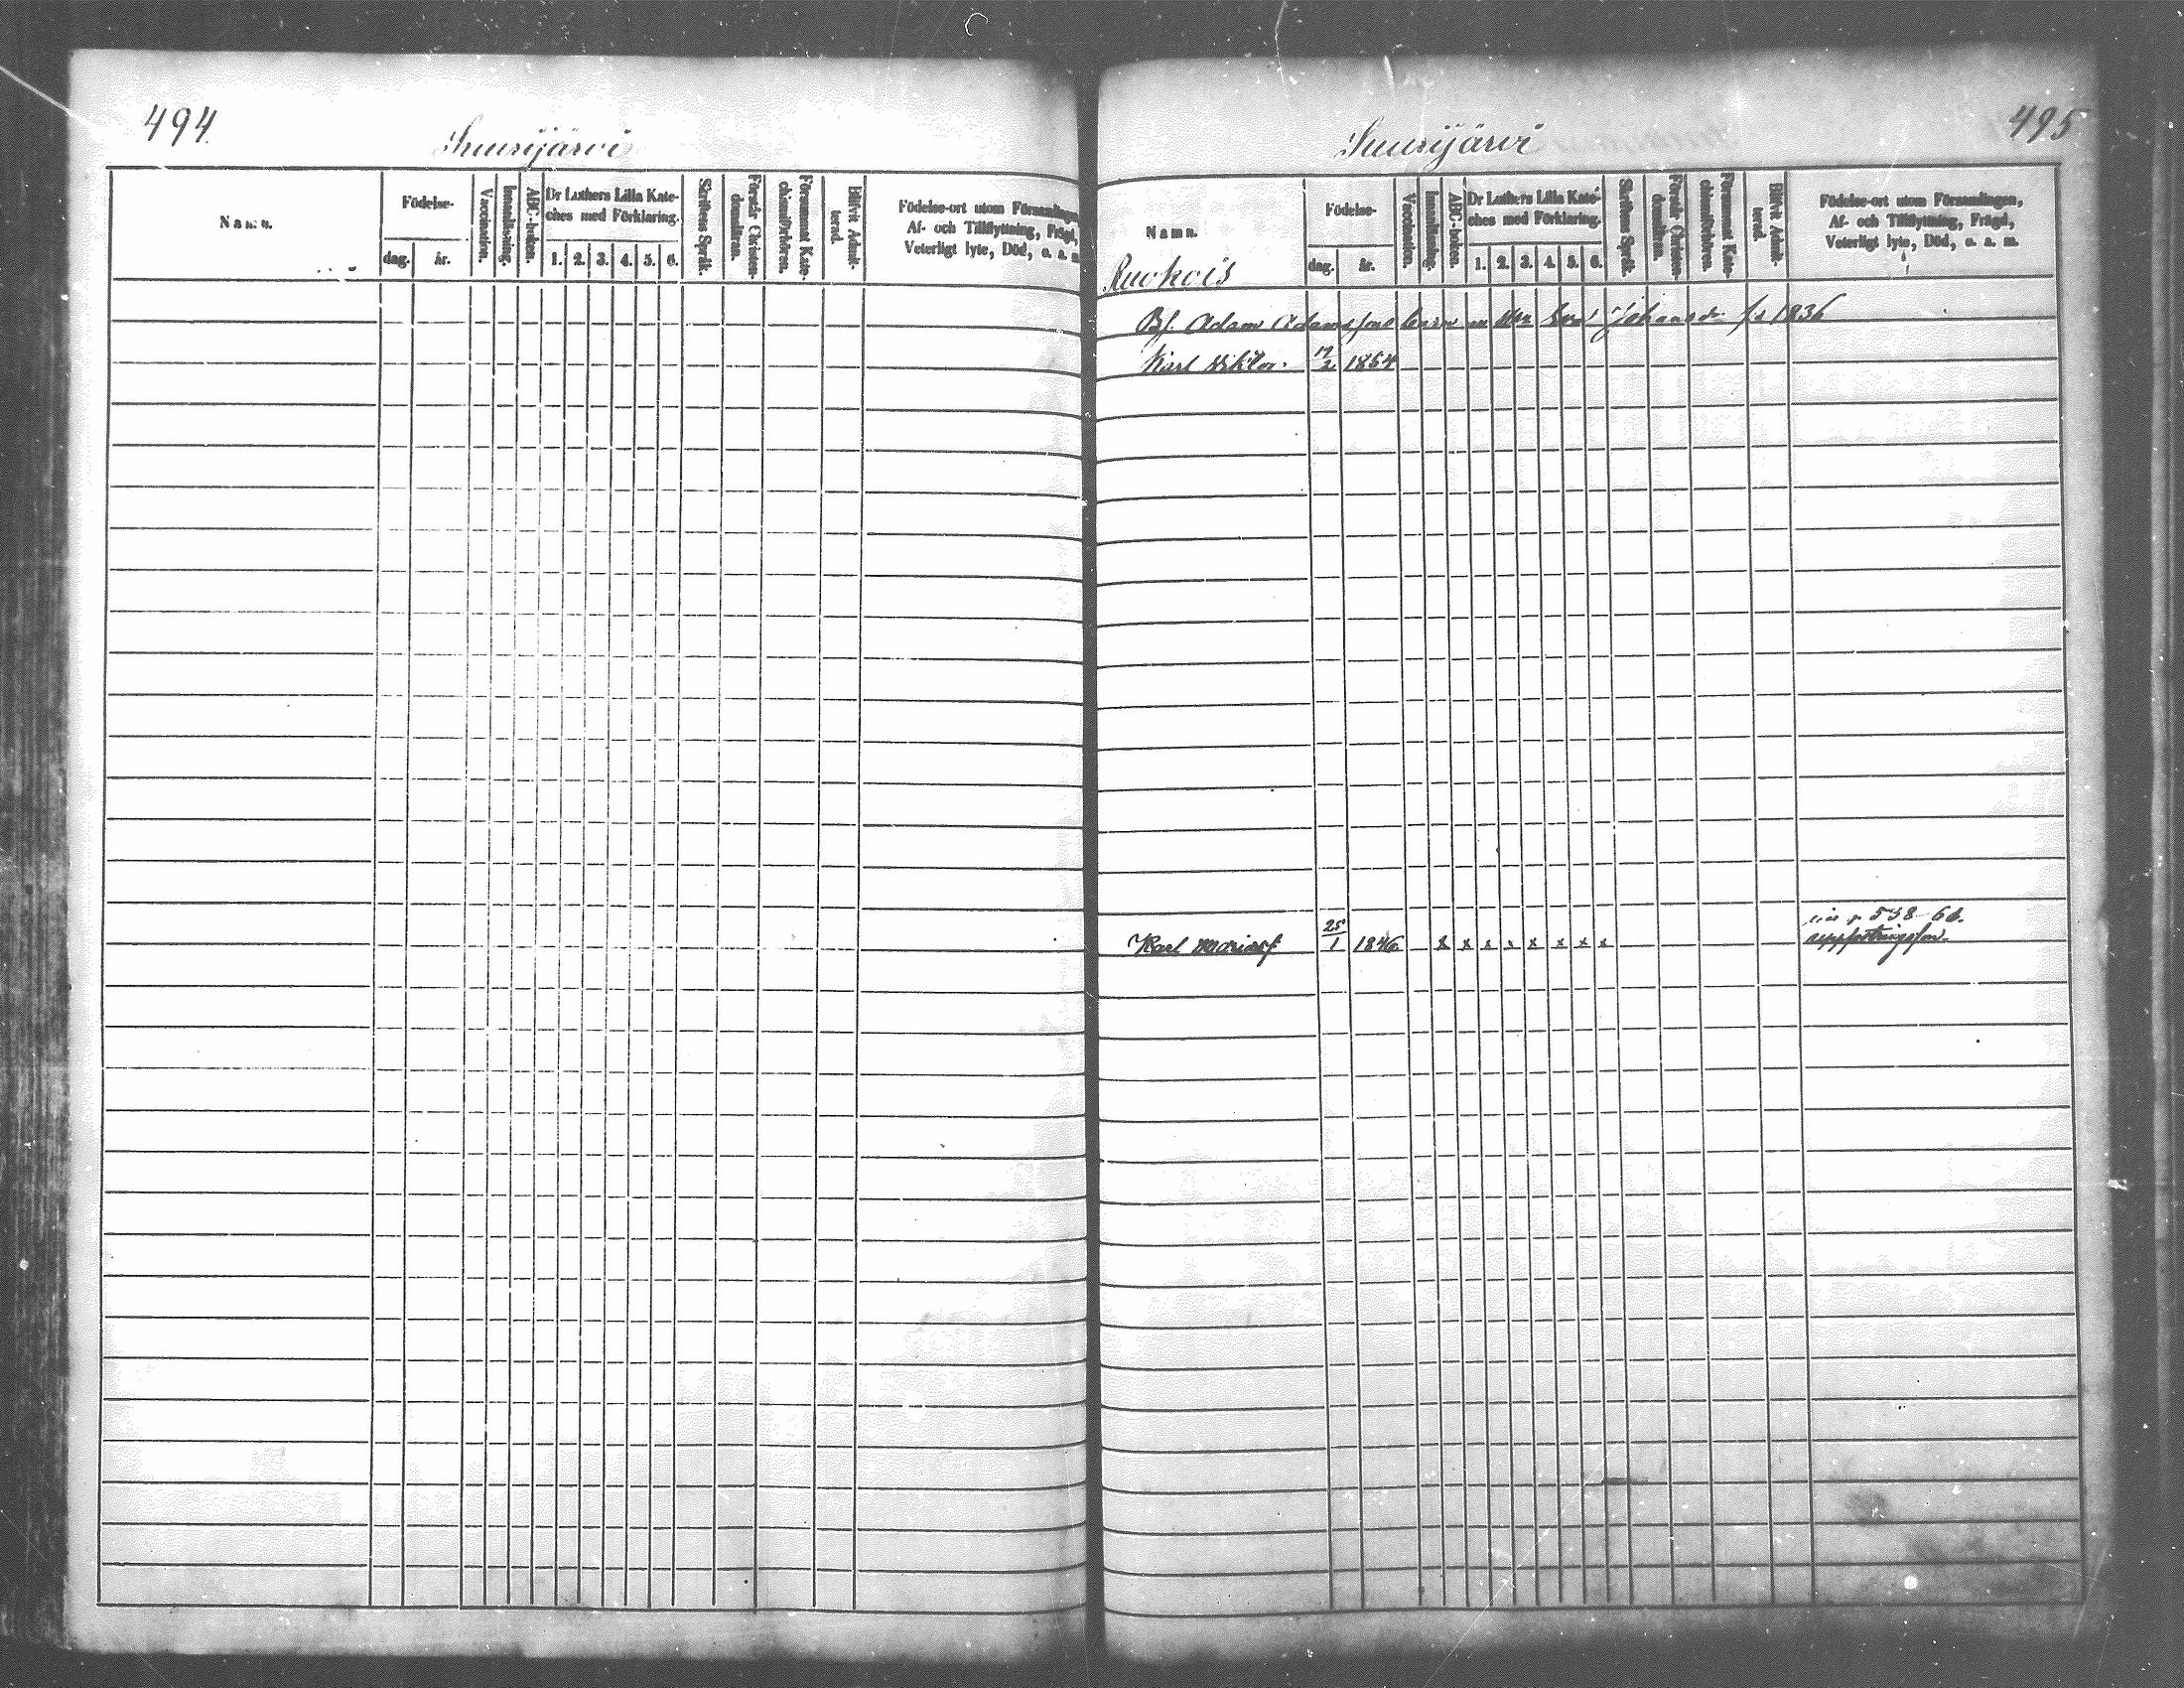 494
Suurijärvi
Namn.
Födelse-
dag.
år.
Vaccination.
Innanläsning.
ABC-boken.
Dr Luthers Lilla Kate-
ches med Förklaring.
1. 2. 3. 4. 5. 6.
Skriftens Språk.
Förstår Christen-
domsläran.
Försummat Kate-
chismiförhören.
Blifvit Admit-
terad.
Födelse-ort utom Församlingen,
Af- och Tillflyttning, Frägd,
Veterligt lyte, Död, o. a. m.
495
Suurijärvi
Namn.
Ruohois
Födelse-
dag.
år.
Vaccination.
Innanläsning.
ABC-boken.
Dr Luthers Lilla Kate-
ches med Förklaring.
1. 2. 3. 4. 5. 6.
Skriftens Språk.
Förstår Christen-
domsläran.
Försummat Kate-
chismiförhören.
Blifvit Admit-
terad.
Födelse-ort utom Församlingen,
Af- och Tillflyttning, Frägd,
Veterligt lyte, Död, o. a. m.
Bf. Adam Adamsson barn m Eva Johansdr 1836
Karl Viktor 2 1864
Karl Mariasf 25/1 1846 x x x x x x x x
p 538 66.